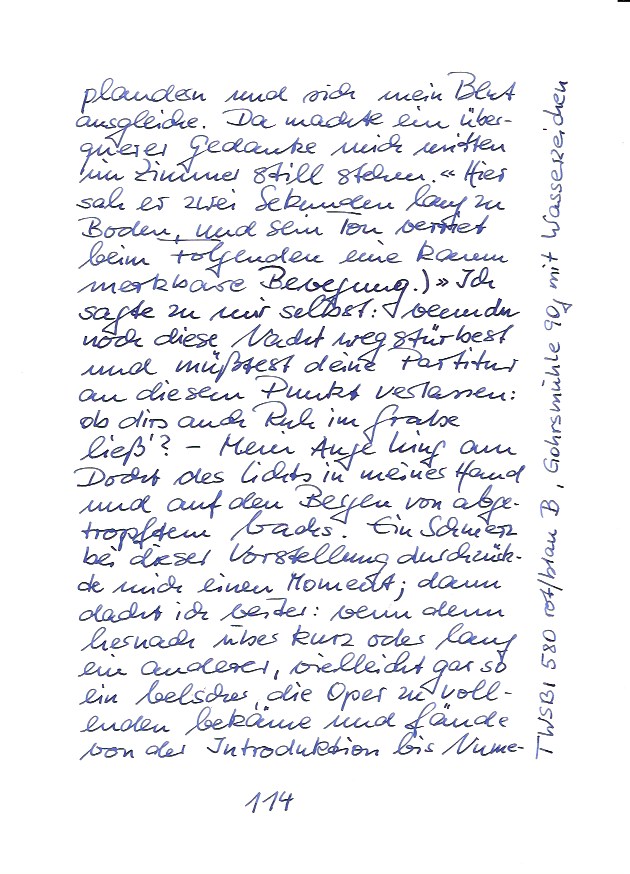 plaudern und sich mein Blut
ausgleiche. Da machte ein über-
querer Gedanke mich mitten
im Zimmer still stehen.« (Hier
sah er zwei Sekunden lang zu
Boden, und sein Ton verriet
beim Folgenden eine kaum
merkbare Bewegung.) » Ich
sagte zu mir selbst: wenn du
noch diese Nacht wegstürbest
und müßtest deine Partitur
an diesem Punkt verlassen:
ob dirs auch Ruh im Grabe
ließ'? – Mein Auge hing am
Docht des Lichts in meiner Hand
und auf den Bergen von abge-
tropftem Wachs. Ein Schmerz
bei dieser Vorstellung durchzück-
te mich einen Moment; dann
dacht ich weiter: wenn denn
hernach über kurz oder lang
ein anderer, vielleicht gar so
ein Welscher, die Oper zu voll-
enden bekäme und fände
von der Introduktion bis Nume-
114
TWSBI 580 rot/blau B, Gohrsmühle 90g mit Wasserzeichen